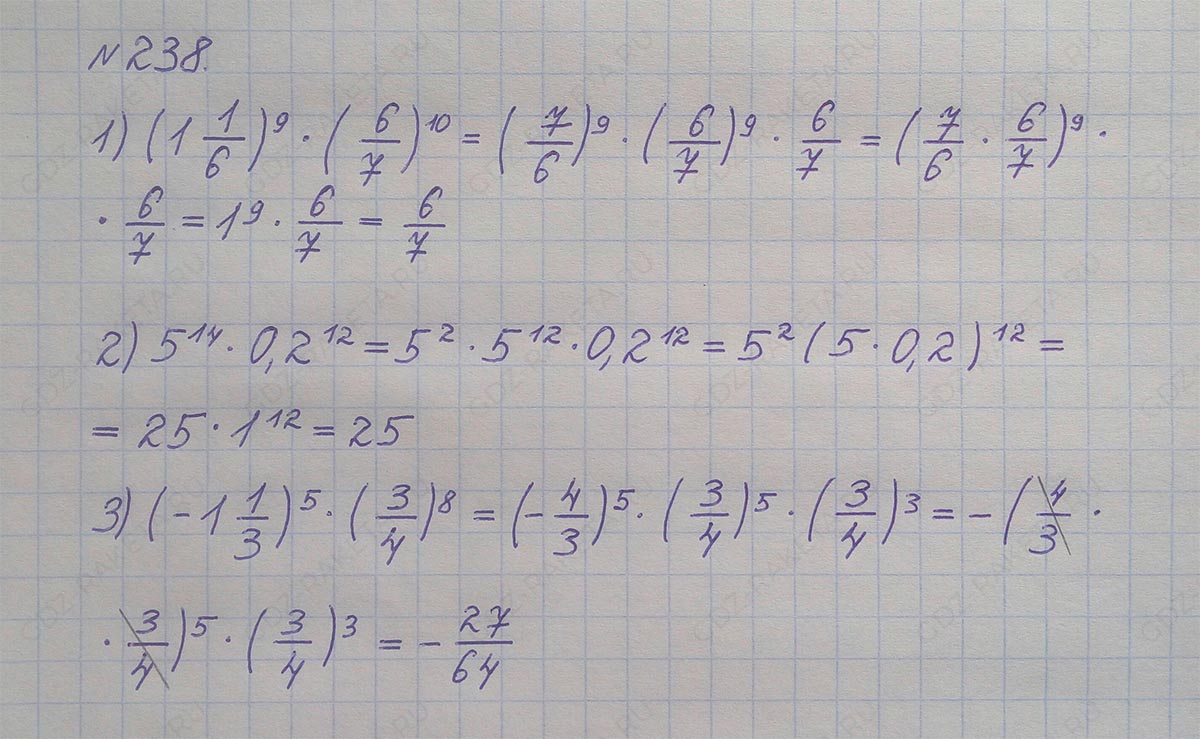 №238.
1) (1 1/6)⁹ · (6/7)¹⁰ = (7/6)⁹ · (6/7)⁹ · 6/7 = (7/6 · 6/7)⁹ ·
· 6/7 = 1⁹ · 6/7 = 6/7
2) 5¹⁴ · 0,2¹² = 5² · 5¹² · 0,2¹² = 5² (5 · 0,2)¹² =
= 25 · 1¹² = 25
3) (-1 1/3)⁵ · (3/4)⁸ = (-4/3)⁵ · (3/4)⁵ · (3/4)³ = -(4/3 ·
· 3/4)⁵ · (3/4)³ = - 27/64
GDZ-RAKETA.RU